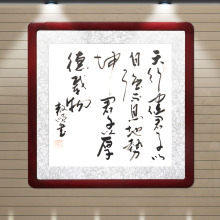 天行健君子以
自强不息地势
坤君子以厚
德载物